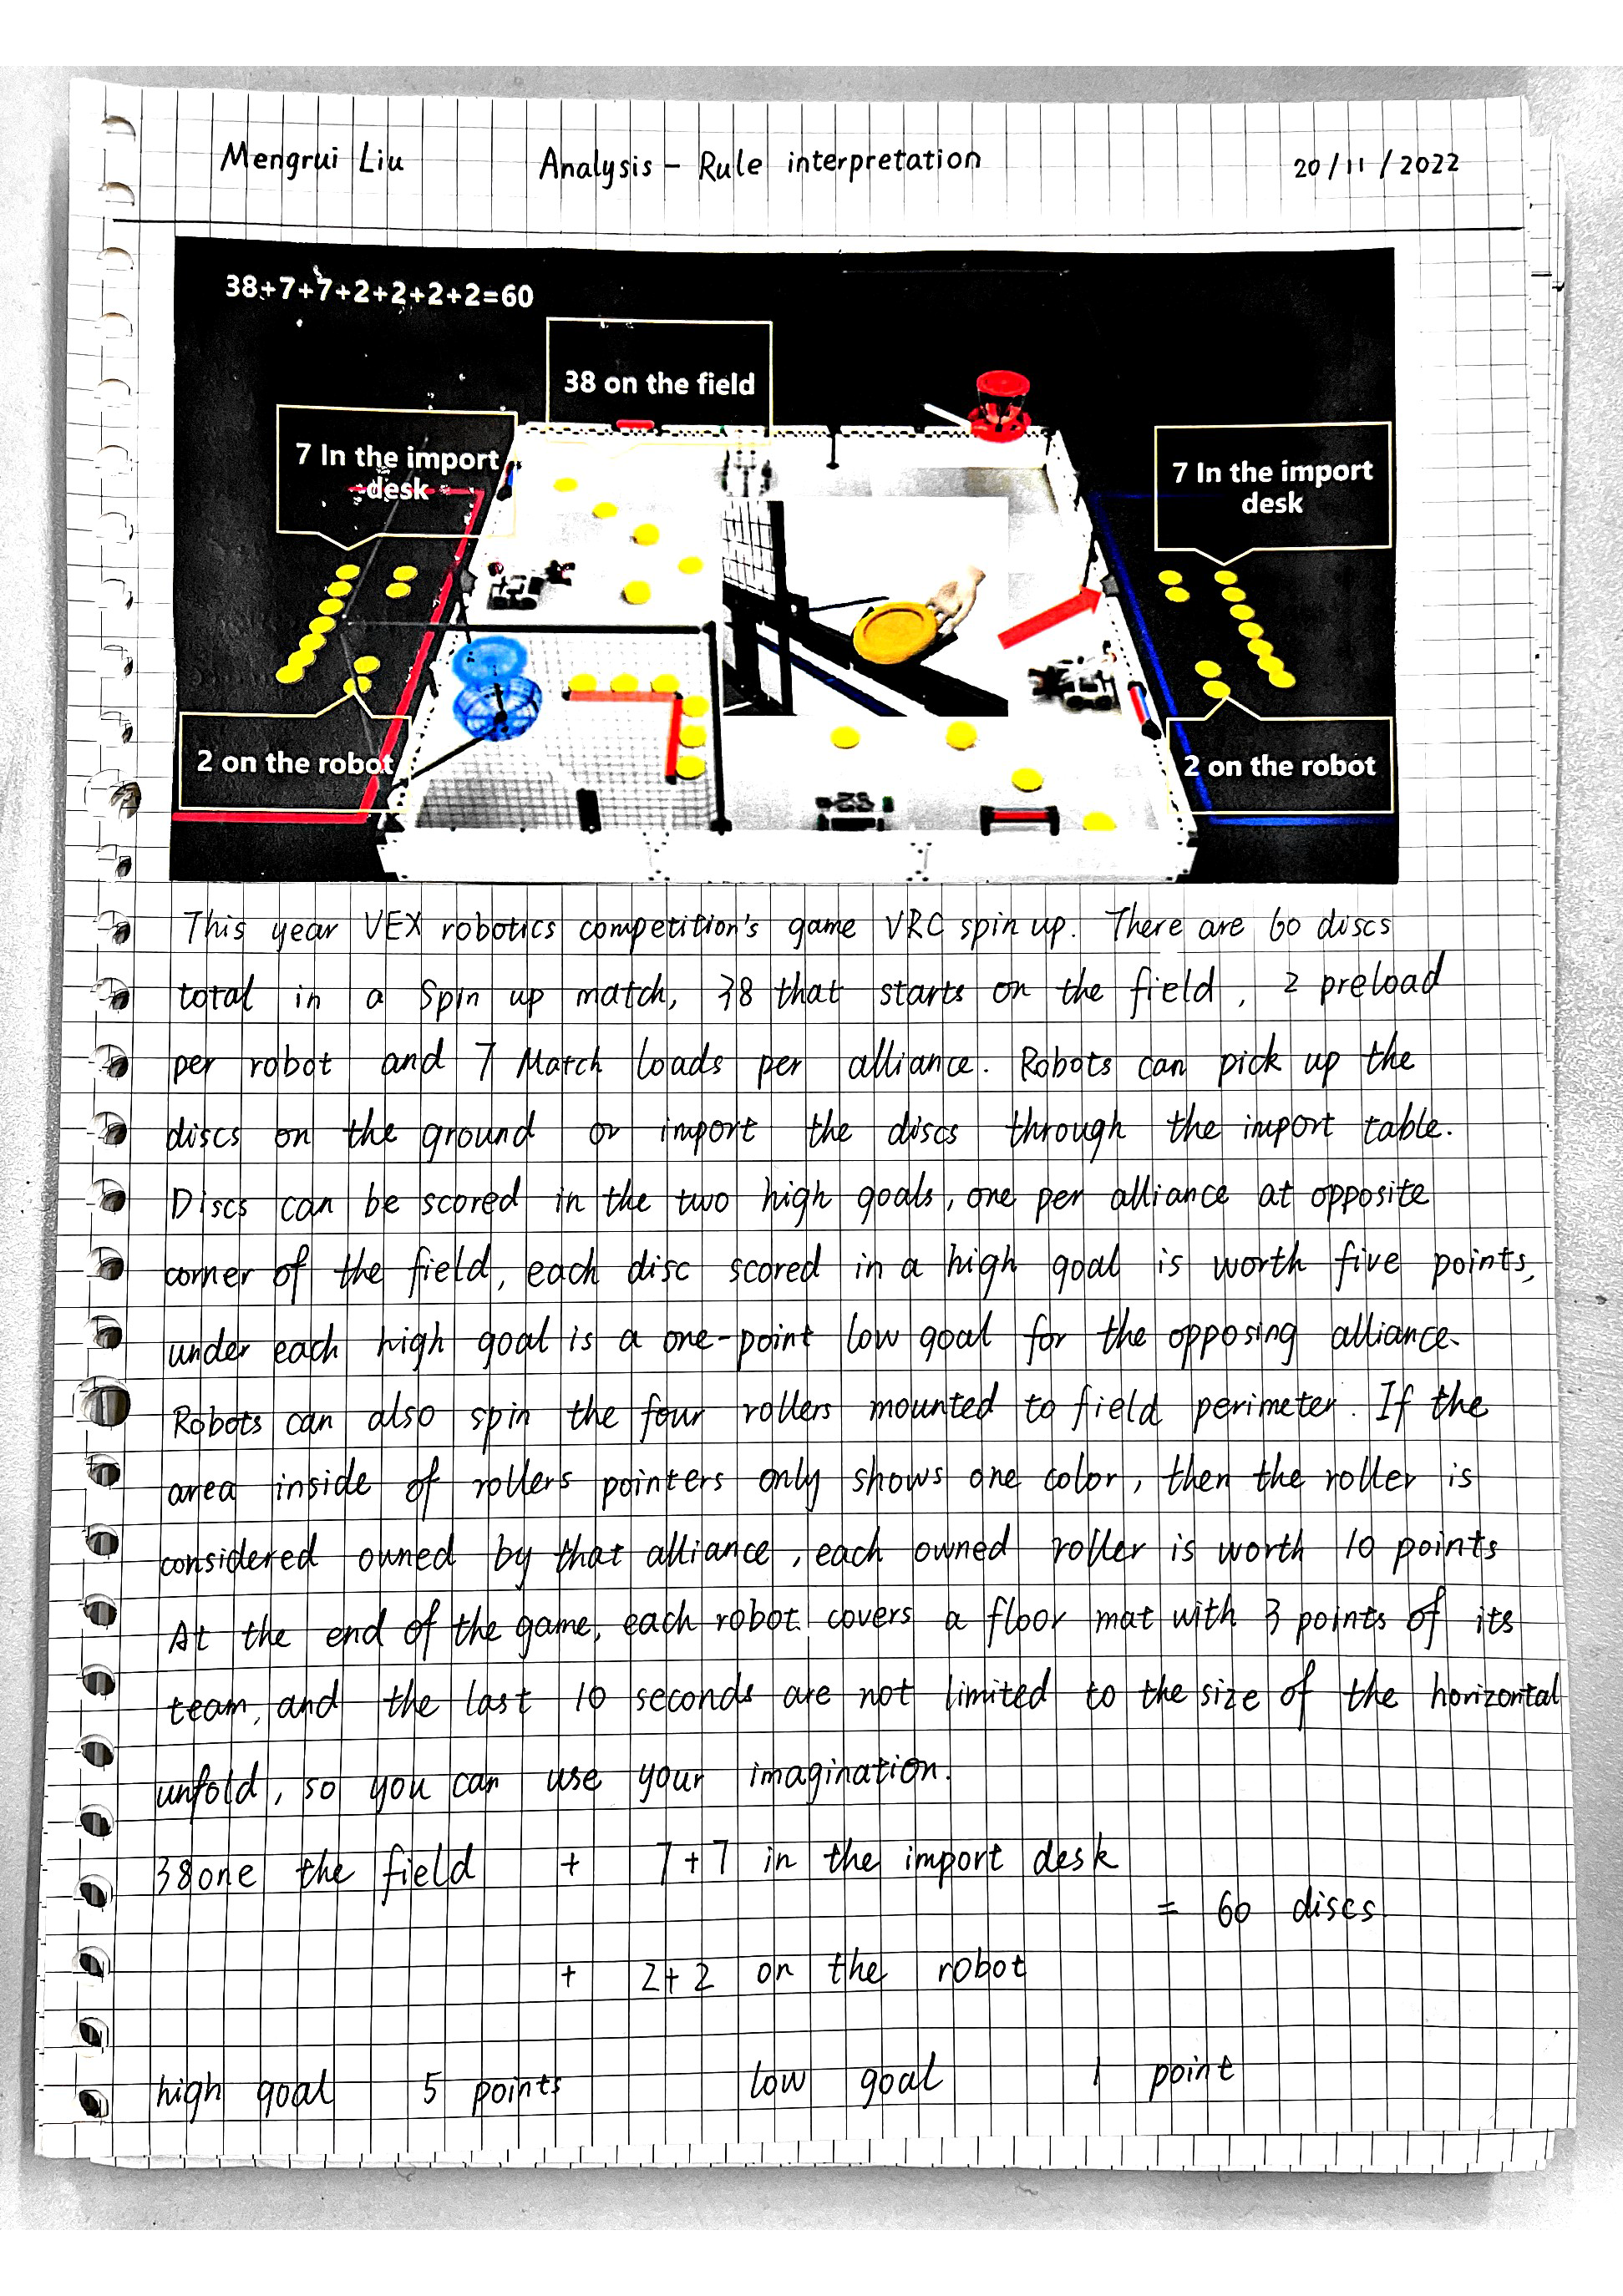 Mengrui Liu Analysis - Rule interpretation 20/11/2022
38+7+7+2+2+2+2=60
38 on the field
7 In the import
desk
7 In the import
desk
2 on the robot
2 on the robot
This year VEX robotics competition's game VRC spin up. There are 60 discs
total in a Spin up match, 38 that starts on the field, 2 preload
per robot and 7 Match loads per alliance. Robots can pick up the
discs on the ground or import the discs through the import table.
Discs can be scored in the two high goals, one per alliance at opposite
corner of the field, each disc scored in a high goal is worth five points,
under each high goal is a one-point low goal for the opposing alliance.
Robots can also spin the four rollers mounted to field perimeter. If the
area inside of rollers pointers only shows one color, then the roller is
considered owned by that alliance, each owned roller is worth 10 points
At the end of the game, each robot covers a floor mat with 3 points of its
team, and the last 10 seconds are not limited to the size of the horizontal
unfold, so you can use your imagination.
38 one the field + 7+7 in the import desk
= 60 discs.
+ 2+2 on the robot
high goal 5 points low goal 1 point